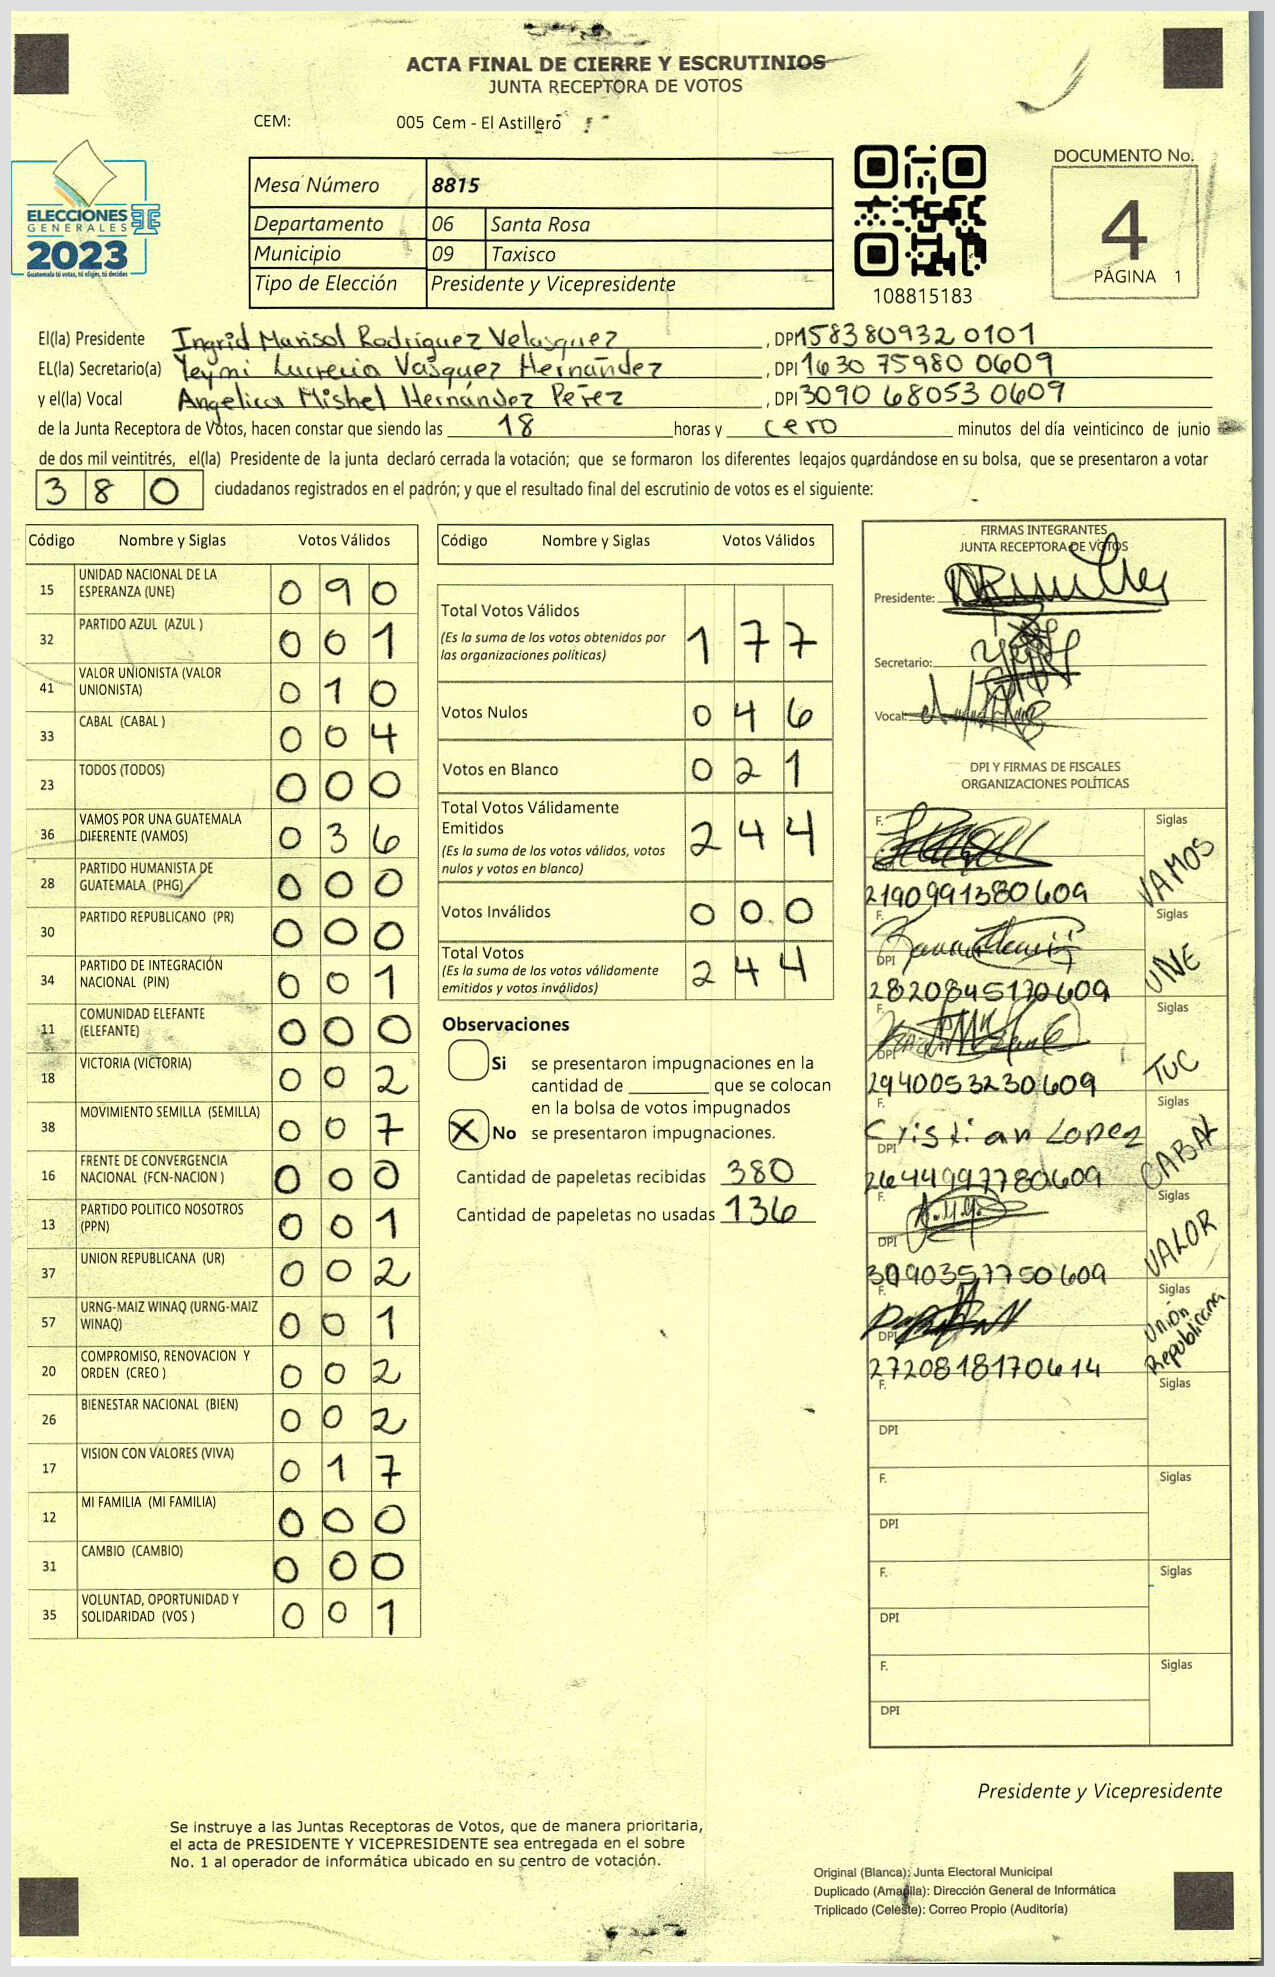 ACTA FINAL DE CIERRE Y ESCRUTINIOS
JUNTA RECEPTORA DE VOTOS
CEM: 005 Cem - El Astillero
ELECCIONES
GENERALES
2023
Guatemala tú votas, tú eliges, tú decides
Mesa Número 8815
Departamento 06 Santa Rosa
Municipio 09 Taxisco
Tipo de Elección Presidente y Vicepresidente
108815183
DOCUMENTO No.
4
PÁGINA 1
El(la) Presidente Ingrid Marisol Rodríguez Velasquez, DPI 158380932 0101
EL(la) Secretario(a) Yeymi Lucrecia Vasquez Hernández, DPI 1630 75980 0609
y el(la) Vocal Angelica Mishel Hernández Pérez, DPI 3090 68053 0609
de la Junta Receptora de Votos, hacen constar que siendo las 18 horas y cero minutos del día veinticinco de junio
de dos mil veintitrés, el(la) Presidente de la junta declaró cerrada la votación; que se formaron los diferentes legajos guardándose en su bolsa, que se presentaron a votar
380 ciudadanos registrados en el padrón; y que el resultado final del escrutinio de votos es el siguiente:
Código Nombre y Siglas Votos Válidos
15 UNIDAD NACIONAL DE LA ESPERANZA (UNE) 0 9 0
32 PARTIDO AZUL (AZUL ) 0 0 1
41 VALOR UNIONISTA (VALOR UNIONISTA) 0 1 0
33 CABAL (CABAL ) 0 0 4
23 TODOS (TODOS) 0 0 0
36 VAMOS POR UNA GUATEMALA DIFERENTE (VAMOS) 0 3 6
28 PARTIDO HUMANISTA DE GUATEMALA (PHG) 0 0 0
30 PARTIDO REPUBLICANO (PR) 0 0 0
34 PARTIDO DE INTEGRACIÓN NACIONAL (PIN) 0 0 1
11 COMUNIDAD ELEFANTE (ELEFANTE) 0 0 0
18 VICTORIA (VICTORIA) 0 0 2
38 MOVIMIENTO SEMILLA (SEMILLA) 0 0 7
16 FRENTE DE CONVERGENCIA NACIONAL (FCN-NACION ) 0 0 0
13 PARTIDO POLITICO NOSOTROS (PPN) 0 0 1
37 UNION REPUBLICANA (UR) 0 0 2
57 URNG-MAIZ WINAQ (URNG-MAIZ WINAQ) 0 0 1
20 COMPROMISO, RENOVACION Y ORDEN (CREO ) 0 0 2
26 BIENESTAR NACIONAL (BIEN) 0 0 2
17 VISION CON VALORES (VIVA) 0 1 7
12 MI FAMILIA (MI FAMILIA) 0 0 0
31 CAMBIO (CAMBIO) 0 0 0
35 VOLUNTAD, OPORTUNIDAD Y SOLIDARIDAD (VOS ) 0 0 1
Código Nombre y Siglas Votos Válidos
Total Votos Válidos 1 7 7
(Es la suma de los votos obtenidos por
las organizaciones políticas)
Votos Nulos 0 4 6
Votos en Blanco 0 2 1
Total Votos Válidamente
Emitidos 2 4 4
(Es la suma de los votos válidos, votos
nulos y votos en blanco)
Votos Inválidos 0 0 0
Total Votos 2 4 4
(Es la suma de los votos válidamente
emitidos y votos inválidos)
Observaciones
Si se presentaron impugnaciones en la
cantidad de ________ que se colocan
en la bolsa de votos impugnados
X No se presentaron impugnaciones.
Cantidad de papeletas recibidas 380
Cantidad de papeletas no usadas 136
FIRMAS INTEGRANTES
JUNTA RECEPTORA DE VOTOS
Presidente:
Secretario:
Vocal:
DPI Y FIRMAS DE FISCALES
ORGANIZACIONES POLÍTICAS
F. Siglas
2190991380609 VAMOS
F. Siglas
DPI
2820845170609 UNE
F. Siglas
DPI
2940053230609 TUC
F. Siglas
Cristian Lopez
DPI
2644997780609 CABAL
F. Siglas
DPI
3090357750609 VALOR
F. Siglas
DPI
2720818170614 Unión Republicana
F. Siglas
DPI
F. Siglas
DPI
F. Siglas
DPI
F. Siglas
DPI
Presidente y Vicepresidente
Se instruye a las Juntas Receptoras de Votos, que de manera prioritaria,
el acta de PRESIDENTE Y VICEPRESIDENTE sea entregada en el sobre
No. 1 al operador de informática ubicado en su centro de votación.
Original (Blanca): Junta Electoral Municipal
Duplicado (Amarilla): Dirección General de Informática
Triplicado (Celeste): Correo Propio (Auditoría)